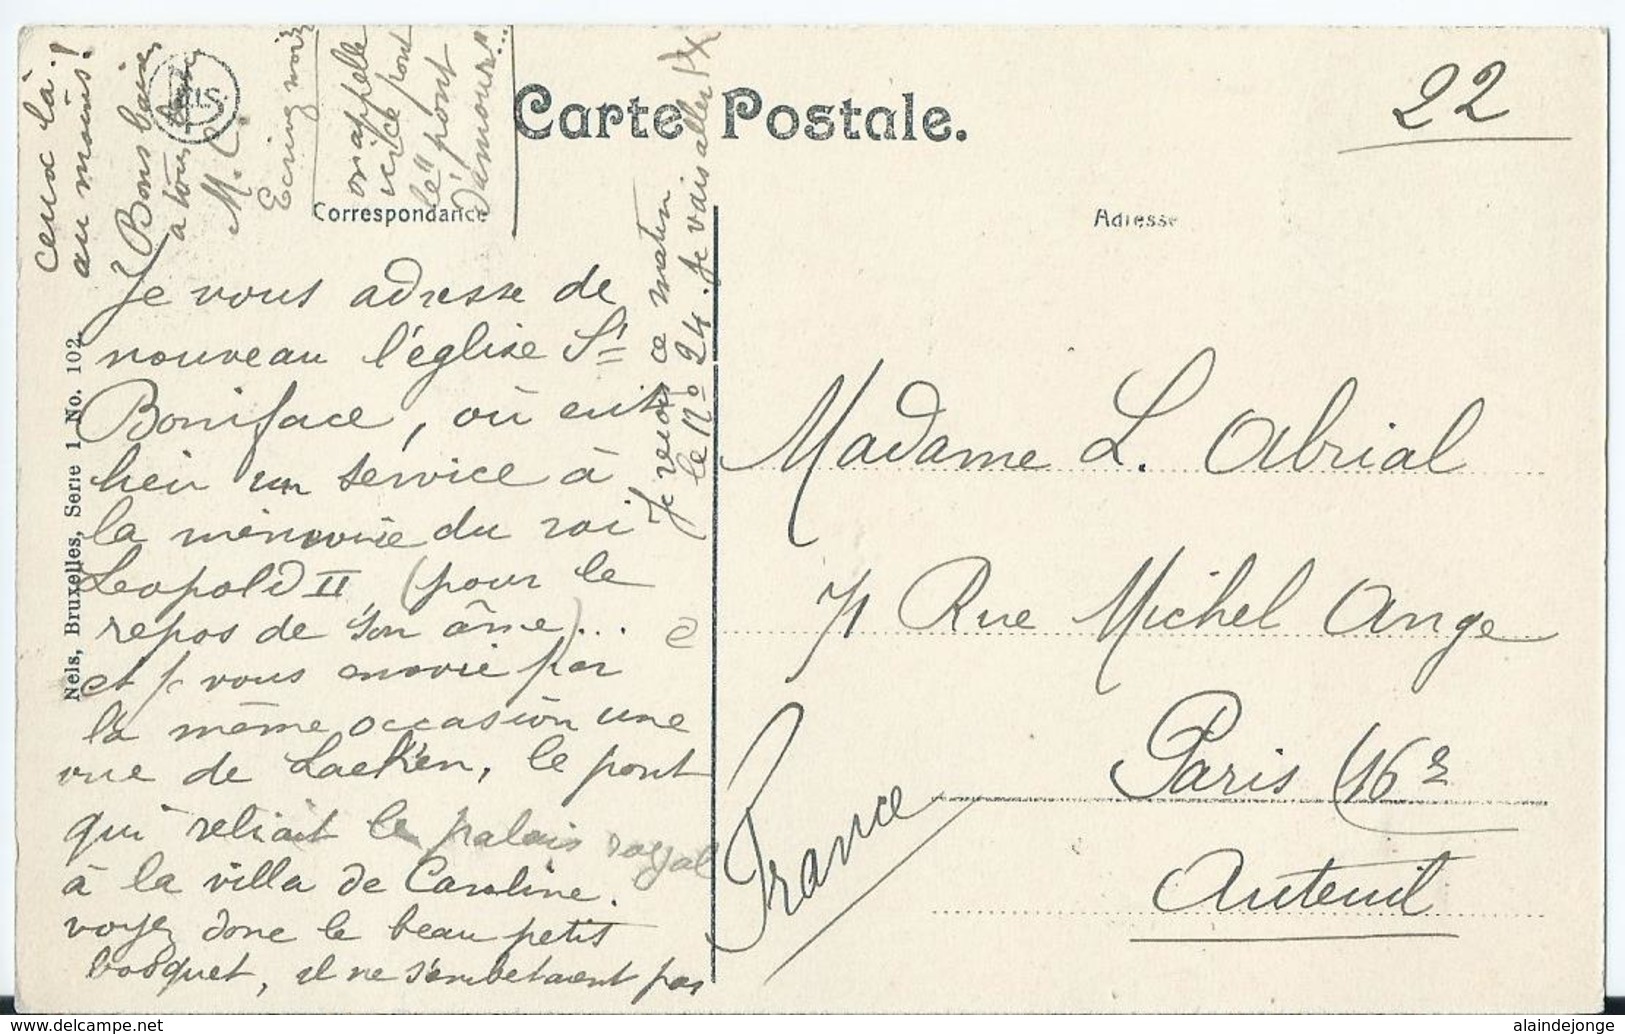 Carte Postale.
22
Correspondance
Adresse
Je vous adresse de
nouveau l'église St
Boniface, où eut
lieu un service à
la mémoire du roi
Leopold II (pour le
repos de son âme)...
et je vous envoie par
la même occasion une
vue de Laeken, le pont
qui reliait le palais royal
à la villa de Caroline.
voyez donc le beau petit
bosquet, il ne s'embetaient pas
ceux là!
au moins!
Bons baisers
à tous
M. C.
Ecrivez moi
on appelle
ce pont
le "pont
d'amour"...
Je reçois ce matin
le No 24. Je vais aller
Madame L. Abrial
71 Rue Michel Ange
Paris (16e
Auteuil
France
Nels, Bruxelles, Serie 1 No. 102.
alaindejonge
https://www.delcampe.net